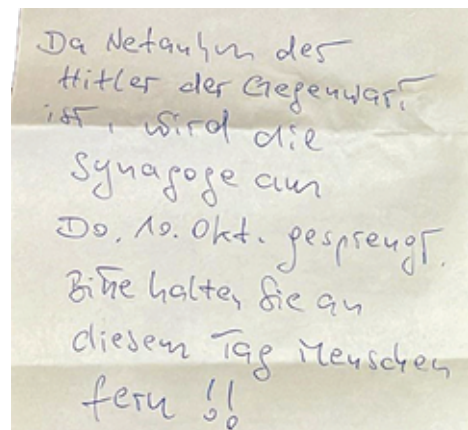 Da Netanhu der
Hitler der Gegenwart
ist, wird die
Synagoge am
Do. 10. Okt. gesprengt.
Bitte halten Sie an
diesem Tag Menschen
fern !!